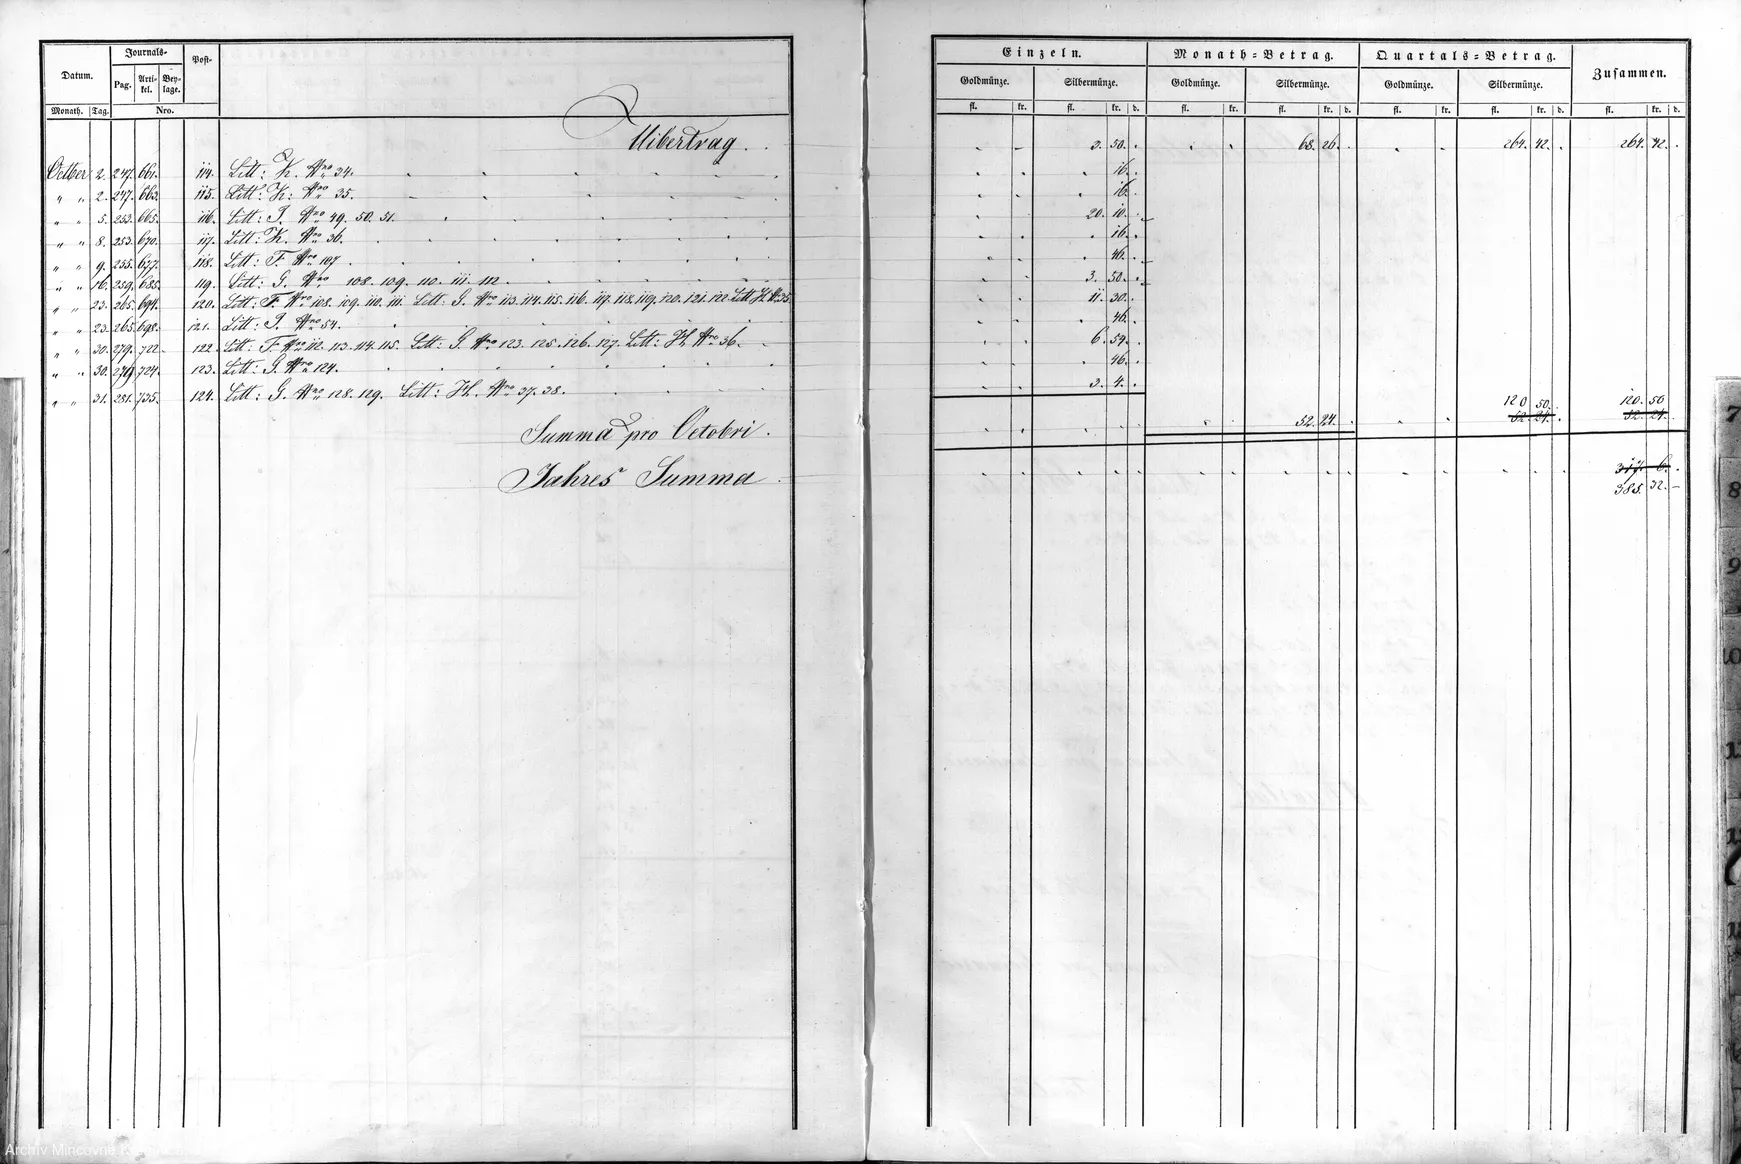 Datum. Journals- Post-
Pag. Arti-kel. Bey-lage.
Monath. Tag. Nro.
Einzeln. Monath-Betrag. Quartals-Betrag. Zusammen.
Goldmünze. Silbermünze. Goldmünze. Silbermünze. Goldmünze. Silbermünze.
fl. kr. fl. kr. d. fl. kr. fl. kr. d. fl. kr. fl. kr. d. fl. kr. d.
Uibertrag. 3. 50. 68. 26. 264. 42. 264. 42.
Octber 2. 247. 661. 114. Litt: K. Nro 34. 16.
" " 2. 247. 663. 115. Litt: K: Nro 35. 16.
" " 5. 253. 665. 116. Litt: J. Nro 49. 50. 51. 20. 10.
" " 8. 253. 670. 117. Litt: K. Nro 36. 16.
" " 9. 255. 677. 118. Litt: F. Nro 107 46.
" " 16. 259. 685. 119. Litt: G. Nro 108. 109. 110. 111. 112. 3. 50.
" " 23. 265. 694. 120. Litt: F. Nro 108. 109. 110. 111. Litt: G. Nro 113. 114. 115. 116. 117. 118. 119. 120. 121. 122. Litt: H. Nro 35. 11. 30.
" " 23. 265. 698. 121. Litt: J. Nro 54. 46.
" " 30. 279. 722. 122. Litt: F. Nro 112. 113. 114. 115. Litt: G. Nro 123. 125. 126. 127. Litt: H. Nro 36. 6. 54.
" " 30. 279. 724. 123. Litt: G. Nro 124. 46.
" " 31. 281. 735. 124. Litt: G. Nro 128. 129. Litt: H. Nro 37. 38. 3. 4.
120 50. 120. 50
Summa pro Octobri. 52. 24. 52. 24. 52. 24.
Jahres Summa 317. 6.
385. 32.
7
8
9
10
Archiv Mincovne